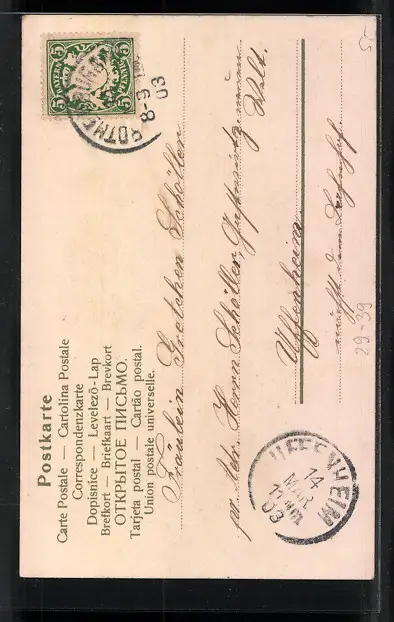 Postkarte
Carte Postale — Cartolina Postale
Correspondenzkarte
Dopisnice — Levelező-Lap
Brefkort — Briefkaart — Brevkort
ОТКРЫТОЕ ПИСЬМО.
Tarjeta postal — Cartão postal.
Union postale universelle.
5 5
BAYERN PFENNIG
5 5
ROTHE
8-9
03
Fräulein Gretchen Schöller
p. Adr. Herrn Schöller, Gutsbesitzer
Uffenheim.
UFFENHEIM
14
MAR
03
29-39